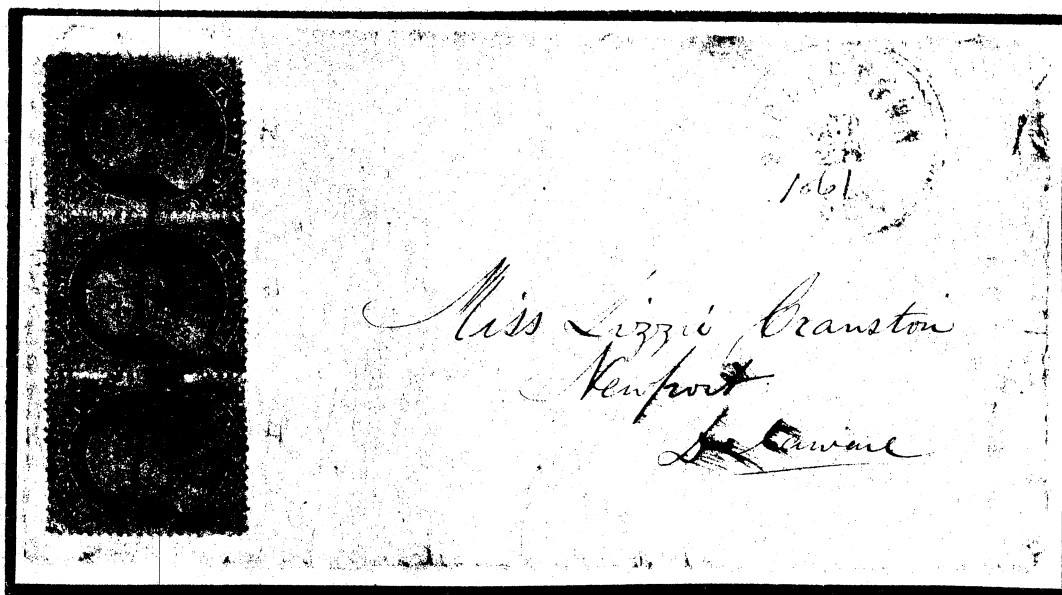 1861
Miss Lizzie Cranston
Newport
Delaware